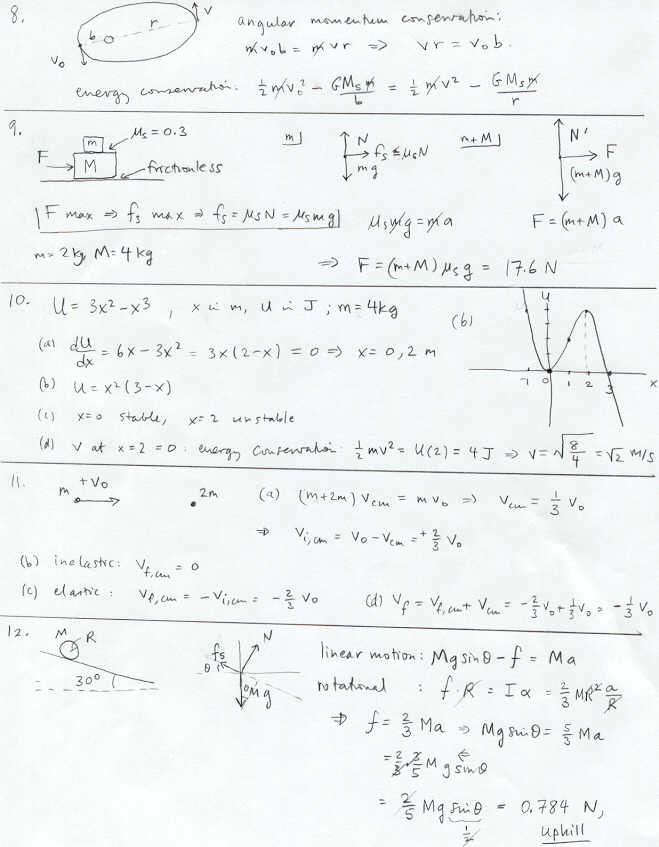 8. b r v v₀ angular momentum conservation:
mv₀b = mvr ⇒ vr = v₀b.
energy conservation: ½mv₀² − GMₛm/b = ½mv² − GMₛm/r
9. m μₛ = 0.3 F M frictionless
m N fₛ ≤ μₛN mg m+M N' F (m+M)g
F max ⇒ fₛ max ⇒ fₛ = μₛN = μₛmg μₛmg = ma F = (m+M)a
m = 2kg, M = 4kg ⇒ F = (m+M)μₛg = 17.6 N
10. U = 3x² − x³, x in m, U in J; m = 4kg (b) U
(a) dU/dx = 6x − 3x² = 3x(2−x) = 0 ⇒ x = 0, 2 m
-1 0 1 2 3 x
(b) U = x²(3−x)
(c) x=0 stable, x=2 unstable
(d) v at x=2 = 0: energy conservation: ½mv² = U(2) = 4J ⇒ v = √(8/4) = √2 m/s
11. m +v₀ 2m (a) (m+2m)v_cm = mv₀ ⇒ v_cm = ⅓ v₀
⇒ v_i,cm = v₀ − v_cm = +⅔ v₀
(b) inelastic: v_f,cm = 0
(c) elastic: v_f,cm = −v_i,cm = −⅔ v₀ (d) v_f = v_f,cm + v_cm = −⅔v₀ + ⅓v₀ = −⅓ v₀
12. M R 30° fₛ θ N θ Mg linear motion: Mg sinθ − f = Ma
rotational : f·R = Iα = ⅔MR² a/R
⇒ f = ⅔ Ma ⇒ Mg sinθ = 5/3 Ma
= 2/3·3/5 Mg sinθ ←
= 2/5 Mg sinθ = 0.784 N,
1/2 uphill